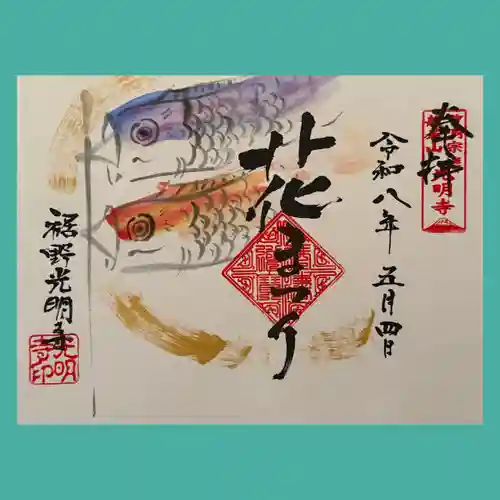 奉拝
令和八年 五月四日
花まつり
裾野光明寺
光明
寺印